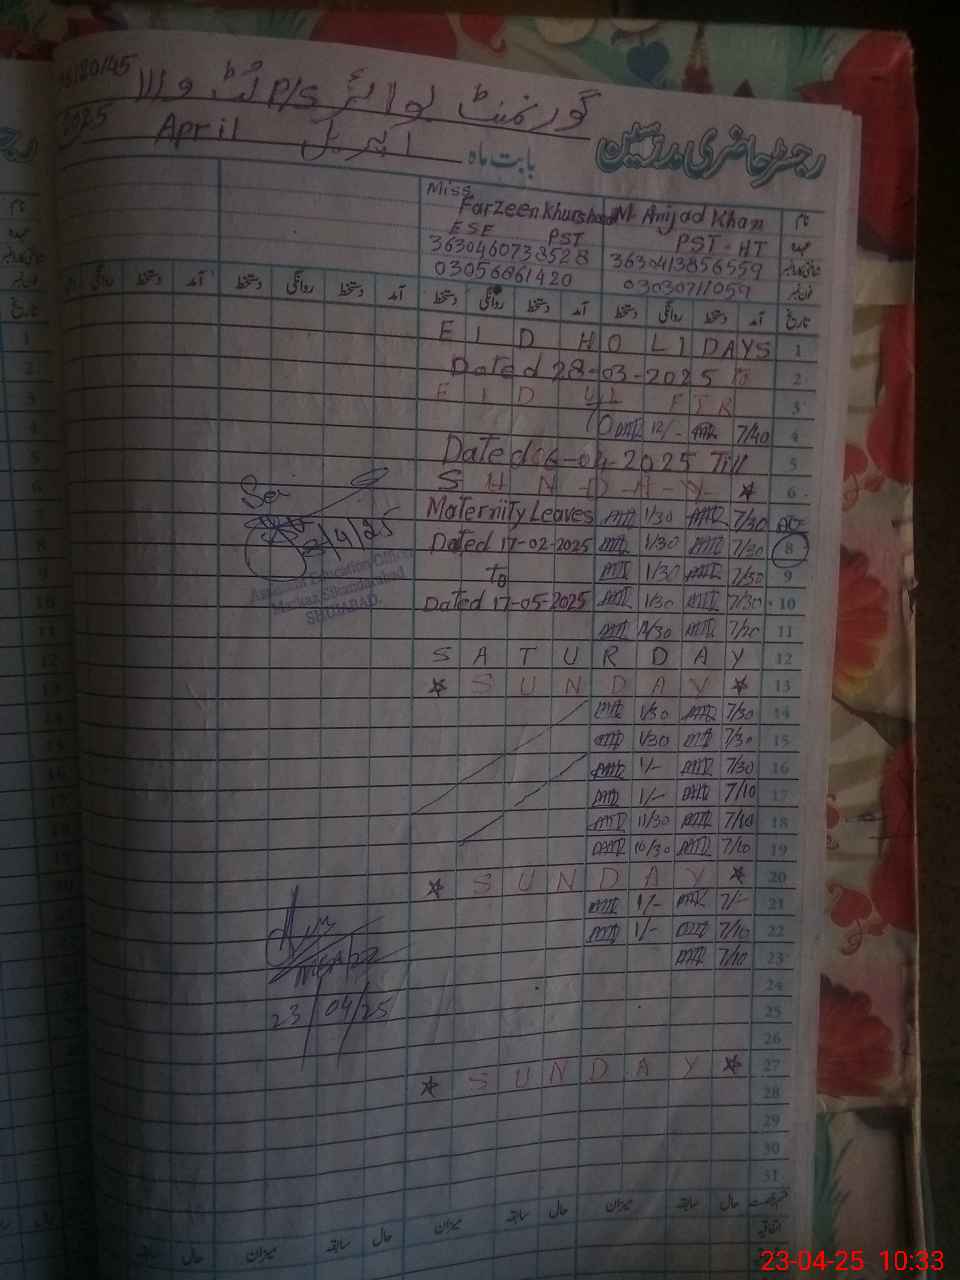 گورنمنٹ بوائز P/S
رجسٹر حاضری مدرسین
بابت ماہ اپریل April 2025
نام M. Amjad Khan Miss Farzeen Khurshed
PST-HT ESE PST
3630413856559 3630460738528
03030711059 03056861420
تاریخ آمد دستخط روانگی دستخط آمد دستخط روانگی دستخط آمد دستخط روانگی دستخط
1 EID HOLIDAYS
2 Dated 28-03-2025 To
3 EID UL FITR
4 12/- 7/40
5 Dated 06-04-2025 Till
6 SUNDAY
7 Maternity Leaves 1/30 7/30
8 Dated 17-02-2025 1/30 7/30
9 To 1/30 7/30
10 Dated 17-05-2025 1/30 7/30
11 7/20
12 SATURDAY
13 SUNDAY
14 1/30 7/30
15 1/30 7/30
16 1/- 7/30
17 1/- 7/10
18 11/30 7/10
19 10/30 7/10
20 SUNDAY
21 1/- 7/-
22 1/- 7/10
23 7/10
24
25
26
27 SUNDAY
28
29
30
31
8/4/25
Assistant Education Officer
Markaz
SHUJABAD.
23/04/25
میزان سابقہ حال میزان سابقہ حال میزان سابقہ حال
23-04-25 10:33